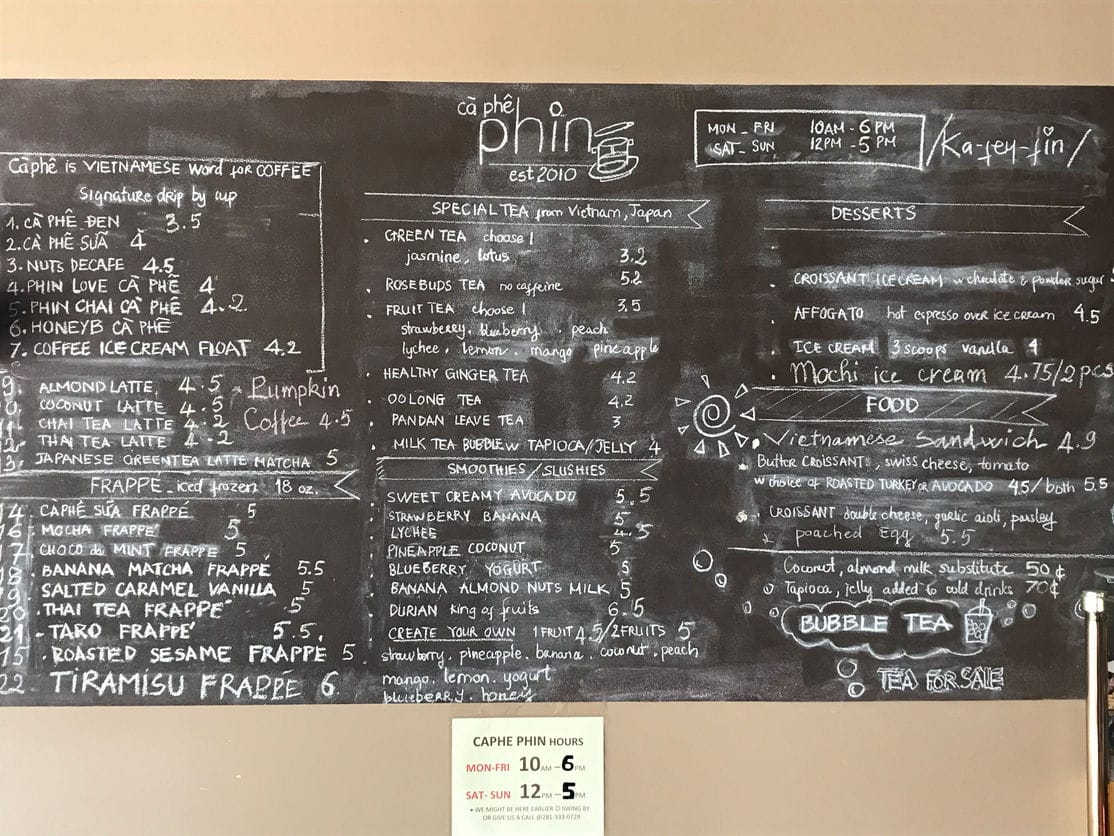 cà phê
phin
est 2010
MON - FRI 10AM - 6 PM
SAT - SUN 12PM - 5 PM
/Ka-fey-fin/
Càphê is VIETNAMESE word for COFFEE
Signature drip by cup
1. CÀ PHÊ ĐEN 3.5
2. CÀ PHÊ SUÃ 4
3. NUTS DECAFE 4.5
4. PHIN LOVE CÀ PHÊ 4
5. PHIN CHAI CÀ PHÊ 4.2
6. HONEYB CÀ PHÊ
7. COFFEE ICE CREAM FLOAT 4.2
9. ALMOND LATTE 4.5
COCONUT LATTE 4.5
CHAI TEA LATTE 4.2
THAI TEA LATTE 4.2
JAPANESE GREENTEA LATTE MATCHA 5
Pumpkin
Coffee 4.5
FRAPPE - iced frozen 18 oz.
CÀPHÊ SŨA FRAPPÉ 5
MOCHA FRAPPE' 5
CHOCO do MINT FRAPPE 5
BANANA MATCHA FRAPPE 5.5
SALTED CARAMEL VANILLA 5
THAI TEA FRAPPE' 5
21 . TARO FRAPPE' 5.5
15 . ROASTED SESAME FRAPPE 5
22 TIRAMISU FRAPPE 6
SPECIAL TEA from Vietnam, Japan
. GREEN TEA choose 1
jasmine, lotus 3.2
. ROSEBUDS TEA no caffeine 5.2
. FRUIT TEA choose 1 3.5
strawberry, blueberry . peach
lychee, lemon . mango pineapple
. HEALTHY GINGER TEA 4.2
. OOLONG TEA 4.2
. PANDAN LEAVE TEA 3
. MILK TEA BUBBLE w TAPIOCA/JELLY 4
SMOOTHIES/SLUSHIES
. SWEET CREAMY AVOCADO 5.5
. STRAWBERRY BANANA 5
LYCHEE 4.5
PINEAPPLE COCONUT 5
. BLUEBERRY YOGURT 5
. BANANA ALMOND NUTS MILK 5
. DURIAN king of fruits 6.5
. CREATE YOUR OWN 1 FRUIT 4.5/2FRUITS 5
strawberry . pineapple . banana . coconut . peach
mango . lemon . yogurt
blueberry . honey
DESSERTS
. CROISSANT ICE CREAM w chocolate & powder sugar
. AFFOGATO hot espresso over ice cream 4.5
. ICE CREAM 3 scoops vanilla 4
. Mochi ice cream 4.75/2pcs
FOOD
. Vietnamese Sandwich 4.9
Butter CROISSANT, swiss cheese, tomato
w choice of ROASTED TURKEY or AVOCADO 4.5/both 5.5
CROISSANT double cheese, garlic aioli, parsley
poached Egg 5.5
Coconut, almond milk substitute 50¢
Tapioca, jelly added to cold drinks 70¢
BUBBLE TEA
TEA FOR SALE
CAPHE PHIN HOURS
MON-FRI 10AM-6PM
SAT- SUN 12PM-5PM
• WE MIGHT BE HERE EARLIER ☺ SWING BY
OR GIVE US A CALL @281-333-0729